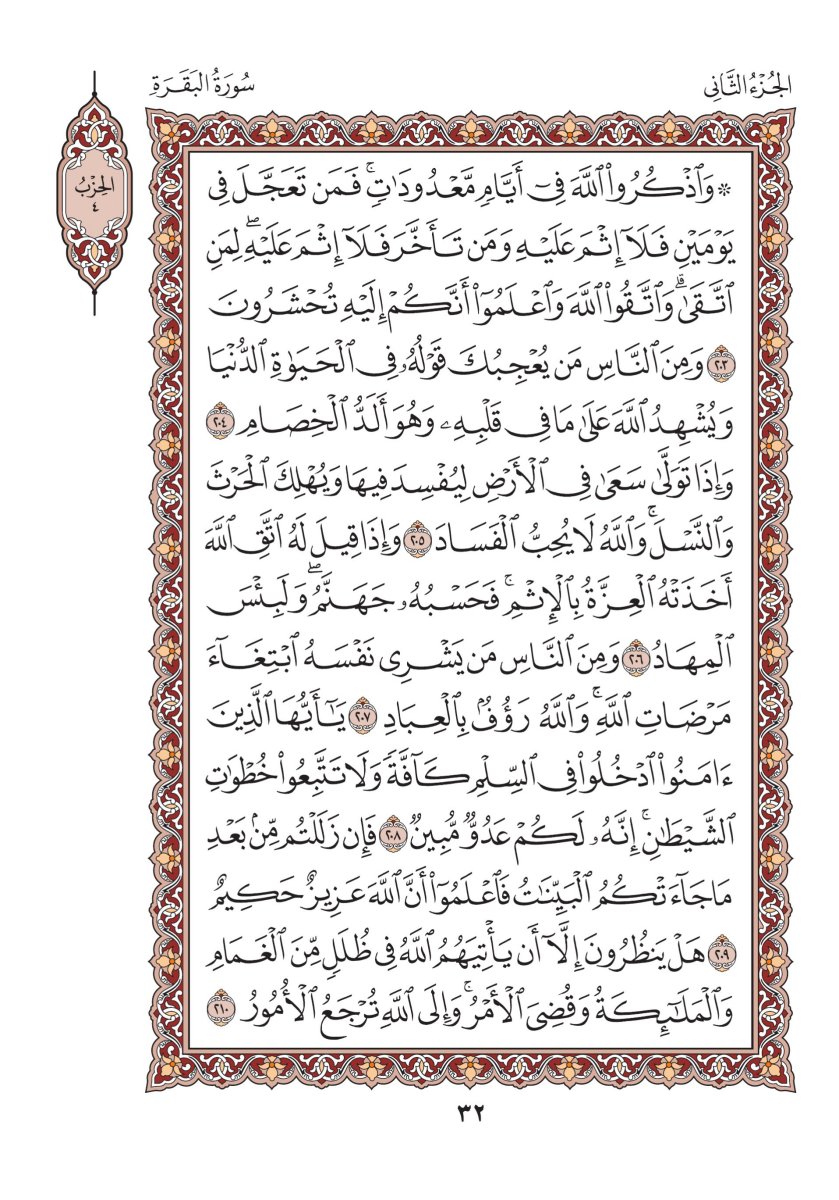 الجُزْءُ الثَّانِي
سُورَةُ البَقَرَةِ
الحِزْبُ
٤
۞ وَٱذْكُرُوا۟ ٱللَّهَ فِىٓ أَيَّامٍ مَّعْدُودَٰتٍ ۚ فَمَن تَعَجَّلَ فِى
يَوْمَيْنِ فَلَآ إِثْمَ عَلَيْهِ وَمَن تَأَخَّرَ فَلَآ إِثْمَ عَلَيْهِ ۖ لِمَنِ
ٱتَّقَىٰ ۗ وَٱتَّقُوا۟ ٱللَّهَ وَٱعْلَمُوٓا۟ أَنَّكُمْ إِلَيْهِ تُحْشَرُونَ
٢٠٣ وَمِنَ ٱلنَّاسِ مَن يُعْجِبُكَ قَوْلُهُۥ فِى ٱلْحَيَوٰةِ ٱلدُّنْيَا
وَيُشْهِدُ ٱللَّهَ عَلَىٰ مَا فِى قَلْبِهِۦ وَهُوَ أَلَدُّ ٱلْخِصَامِ ٢٠٤
وَإِذَا تَوَلَّىٰ سَعَىٰ فِى ٱلْأَرْضِ لِيُفْسِدَ فِيهَا وَيُهْلِكَ ٱلْحَرْثَ
وَٱلنَّسْلَ ۗ وَٱللَّهُ لَا يُحِبُّ ٱلْفَسَادَ ٢٠٥ وَإِذَا قِيلَ لَهُ ٱتَّقِ ٱللَّهَ
أَخَذَتْهُ ٱلْعِزَّةُ بِٱلْإِثْمِ ۚ فَحَسْبُهُۥ جَهَنَّمُ ۖ وَلَبِئْسَ
ٱلْمِهَادُ ٢٠٦ وَمِنَ ٱلنَّاسِ مَن يَشْرِى نَفْسَهُ ٱبْتِغَآءَ
مَرْضَاتِ ٱللَّهِ ۚ وَٱللَّهُ رَءُوفٌۢ بِٱلْعِبَادِ ٢٠٧ يَٰٓأَيُّهَا ٱلَّذِينَ
ءَامَنُوا۟ ٱدْخُلُوا۟ فِى ٱلسِّلْمِ كَآفَّةً وَلَا تَتَّبِعُوا۟ خُطُوَٰتِ
ٱلشَّيْطَٰنِ ۚ إِنَّهُۥ لَكُمْ عَدُوٌّ مُّبِينٌ ٢٠٨ فَإِن زَلَلْتُم مِّنۢ بَعْدِ
مَا جَآءَتْكُمُ ٱلْبَيِّنَٰتُ فَٱعْلَمُوٓا۟ أَنَّ ٱللَّهَ عَزِيزٌ حَكِيمٌ
٢٠٩ هَلْ يَنظُرُونَ إِلَّآ أَن يَأْتِيَهُمُ ٱللَّهُ فِى ظُلَلٍ مِّنَ ٱلْغَمَامِ
وَٱلْمَلَٰٓئِكَةُ وَقُضِىَ ٱلْأَمْرُ ۚ وَإِلَى ٱللَّهِ تُرْجَعُ ٱلْأُمُورُ ٢١٠
٣٢